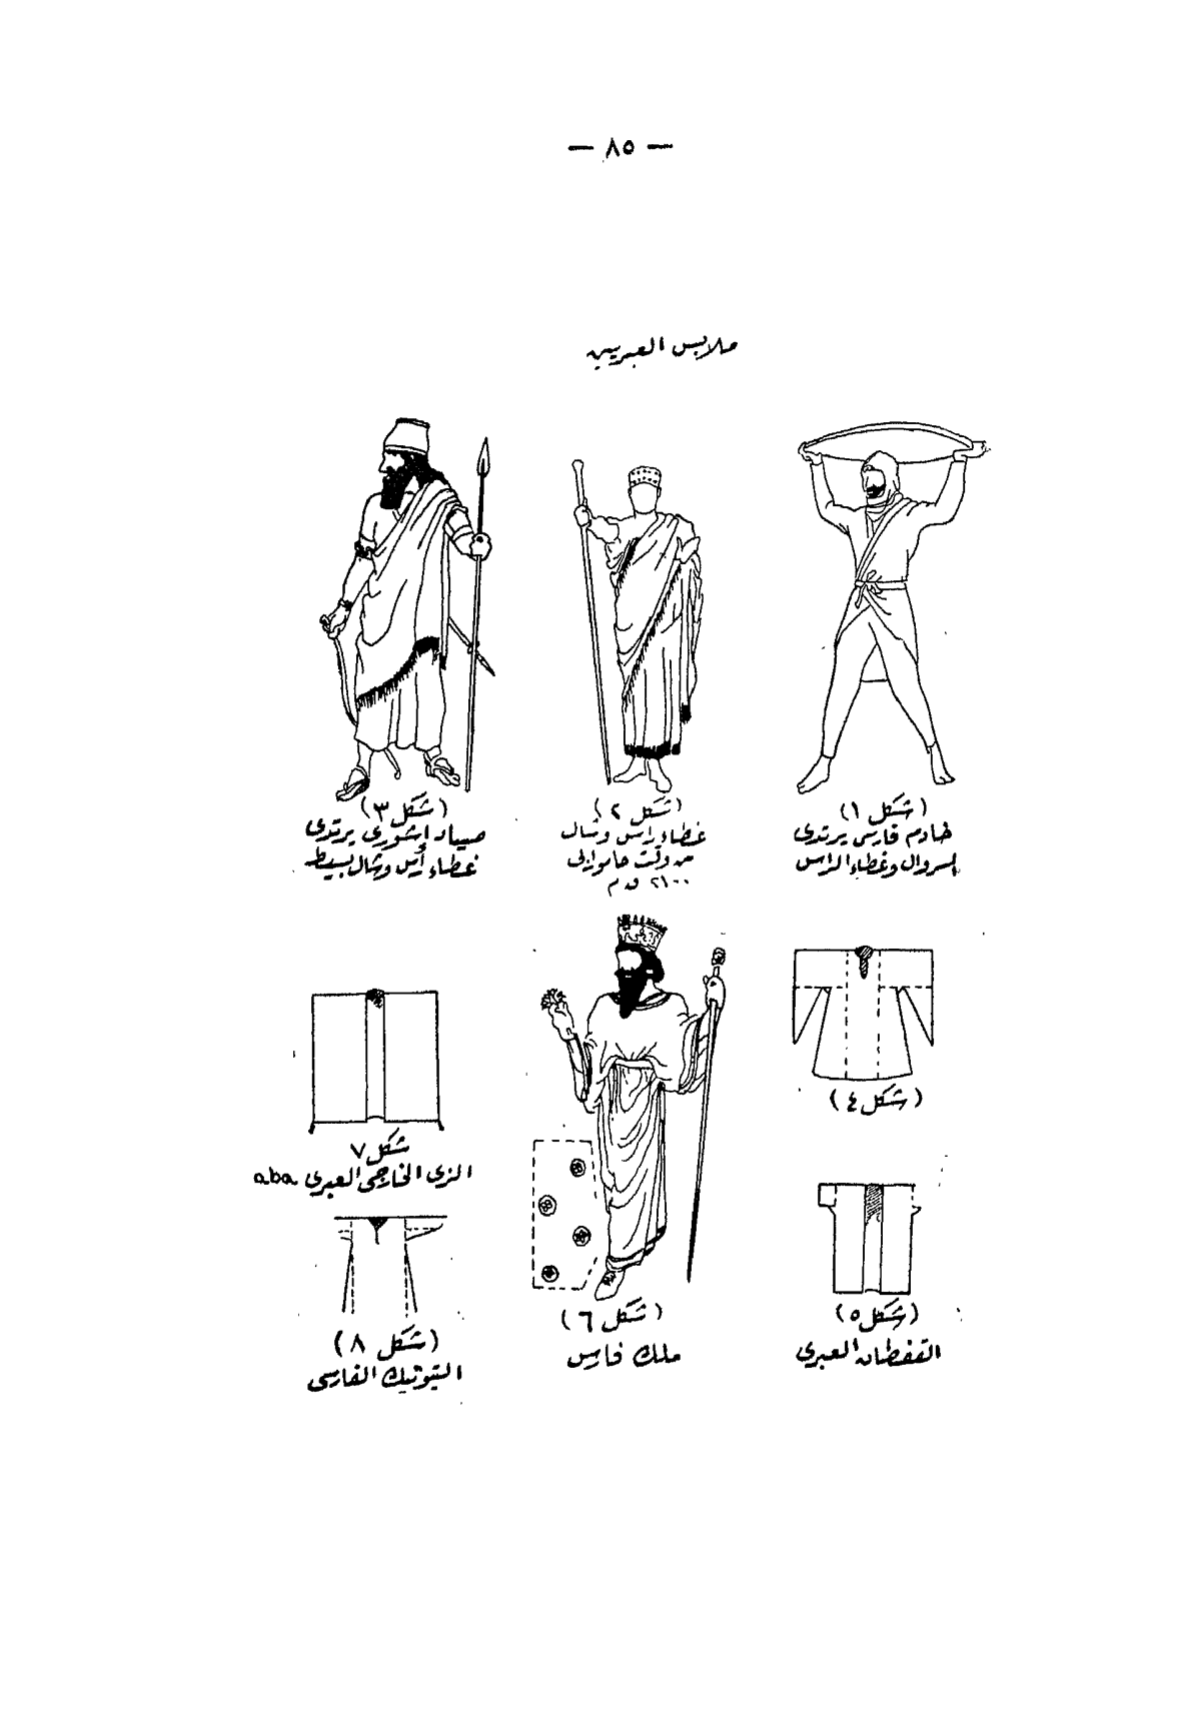 — ٨٥ —
ملابس العبريين
(شكل ١)
خادم فارسى يرتدى
السروال وغطاء الراس
(شكل ٢)
غطاء راس وشال
من وقت حامورابى
٢١٠٠ ق م
(شكل ٣)
صياد اشورى يرتدى
غطاء رأس وشال بسيط
(شكل ٤)
(شكل ٥)
القفطان العبرى
(شكل ٦)
ملك فارس
شكل ٧
الزى الخارجى العبرى aba
(شكل ٨)
التيونيك الفارسى